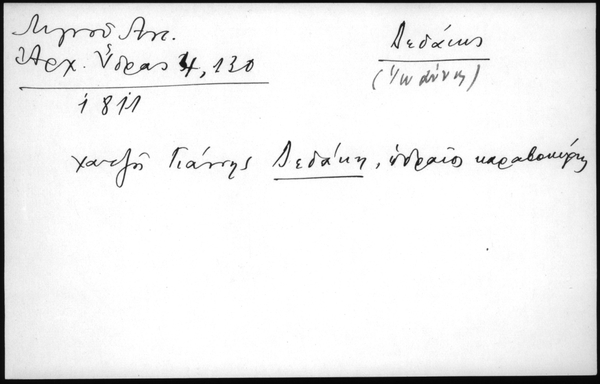 Λιγνοῦ Ἀντ.
Ἀρχ. Ὕδρας 4, 130
1811
Δεδάκης
(Ἰωάννης)
χατζῆ Γιάννης Δεδάκη, ὑδραῖος καραβοκύρης